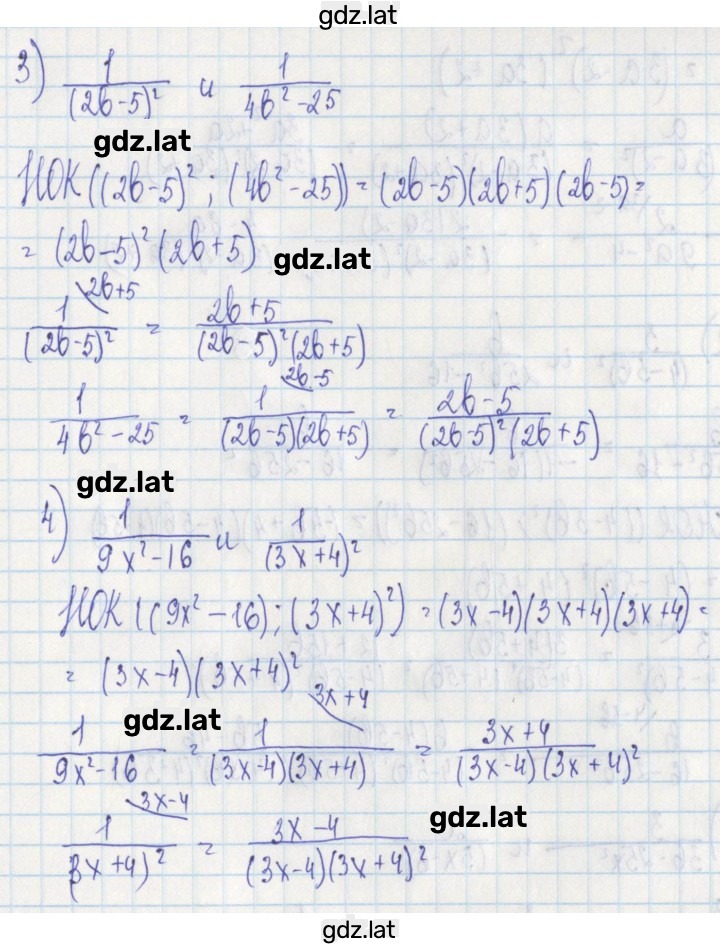 gdz.lat
3) 1/(2b-5)² и 1/4b²-25
gdz.lat
НОК ((2b-5)²; (4b²-25)) = (2b-5)(2b+5)(2b-5) =
= (2b-5)²(2b+5) gdz.lat
1/(2b-5)² \2b+5 = 2b+5/(2b-5)²(2b+5)
1/4b²-25 = 1/(2b-5)(2b+5) \2b-5 = 2b-5/(2b-5)²(2b+5)
gdz.lat
4) 1/9x²-16 и 1/(3x+4)²
НОК ((9x²-16); (3x+4)²) = (3x-4)(3x+4)(3x+4) =
= (3x-4)(3x+4)²
gdz.lat
1/9x²-16 = 1/(3x-4)(3x+4) \3x+4 = 3x+4/(3x-4)(3x+4)²
gdz.lat
1/(3x+4)² \3x-4 = 3x-4/(3x-4)(3x+4)²
gdz.lat